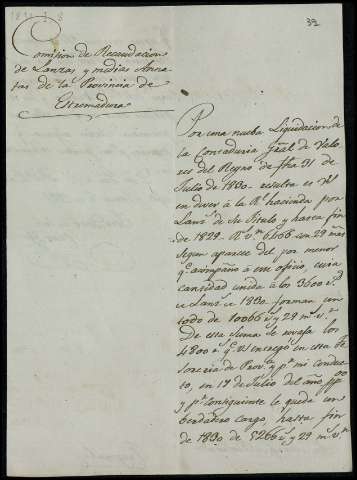 39
Comision de Recaudacion
de Lanzas y medias Anna-
tas de la Provincia de
Estremadura
Por una nueba Liquidacion de
la Contaduria Gral de Valo-
res del Reyno de fha 31 de
Julio de 1830 resulta es V.
en dever á la Rl. hacienda por
Lanzs. de su Titulo y hasta fin
de 1829 Rs. vn. 6466 con 29 mrs.
segun aparece del por menor
qe. acompaño á mi oficio, cuia
cantidad unida á los 3600 rs.
de Lanzs. de 1830 forman un
todo de 10066 rs. y 29 ms. vn.
De esta suma se revaja los
4800 rs. qe. V. entregó en esta Te-
soreria de Prova. y pr. mi conduc-
to, en 17 de Julio del año ppdo.
y pr. consiguiente le queda un
berdadero cargo, hasta fin
de 1830 de 5266 rs. y 29 ms. vn.